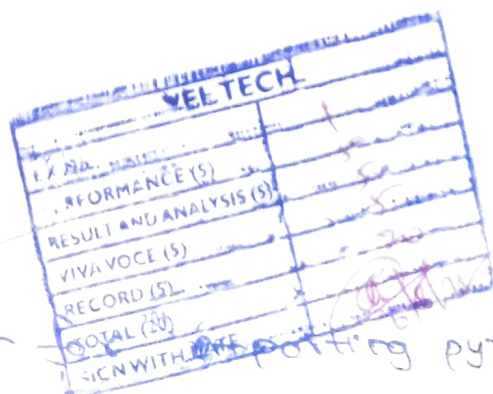 VEL TECH
EX No. 1
PERFORMANCE (5) 5
RESULT AND ANALYSIS (5) 5
VIVA VOCE (5) 5
RECORD (5)
TOTAL (20) 20
SIGN WITH DATE
porting py